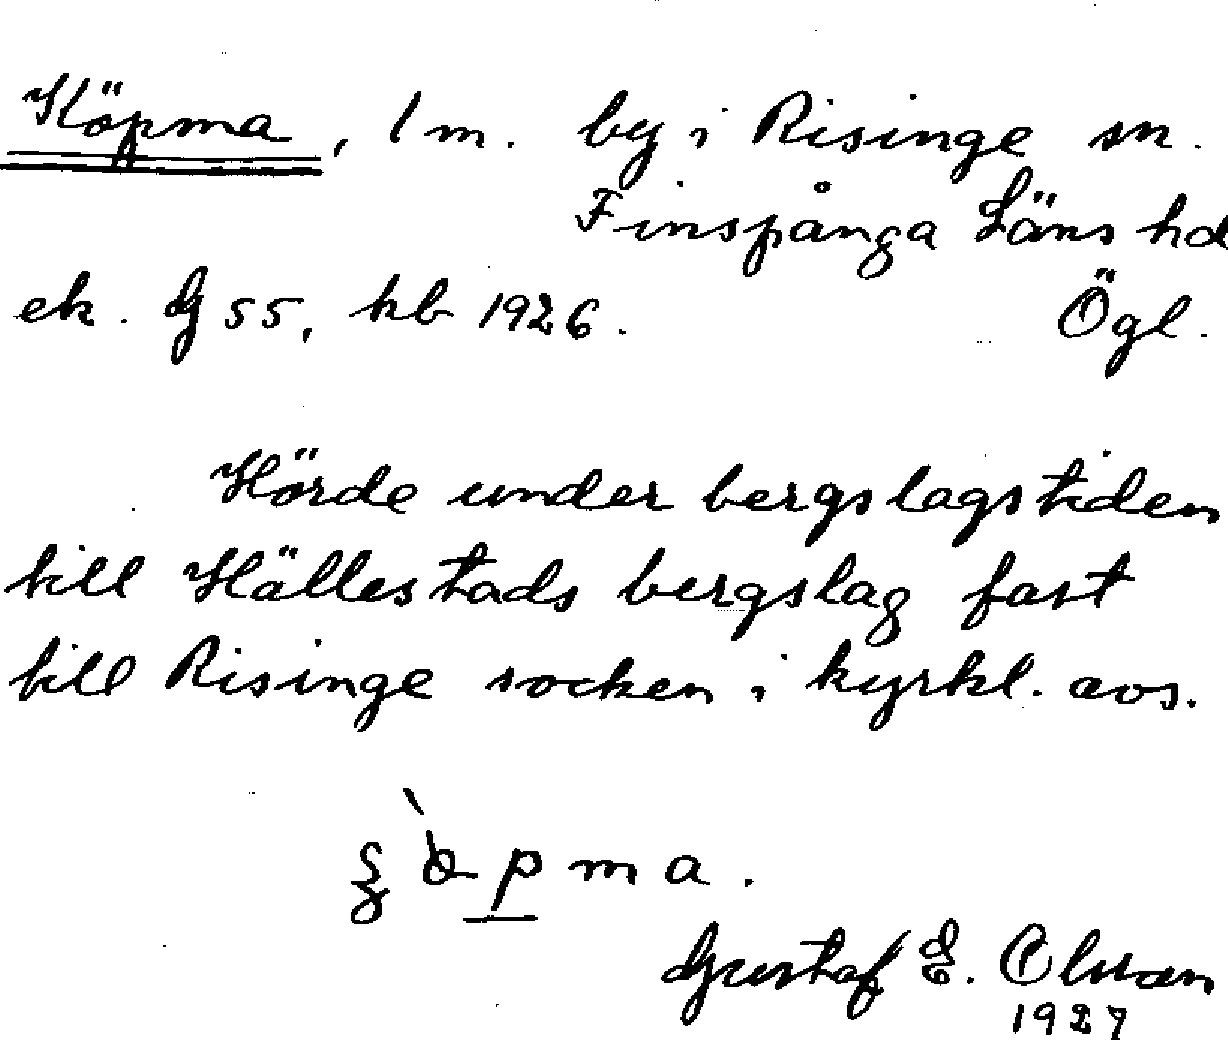 Köpma, 1 m. by i Risinge sn.
Finspånga Läns hd
ek. G 55, kb 1926. Ögl.
Hörde under bergslagstiden
till Hällestads bergslag fast
till Risinge socken i kyrkl. avs.
Gustaf E. Olsson
1927